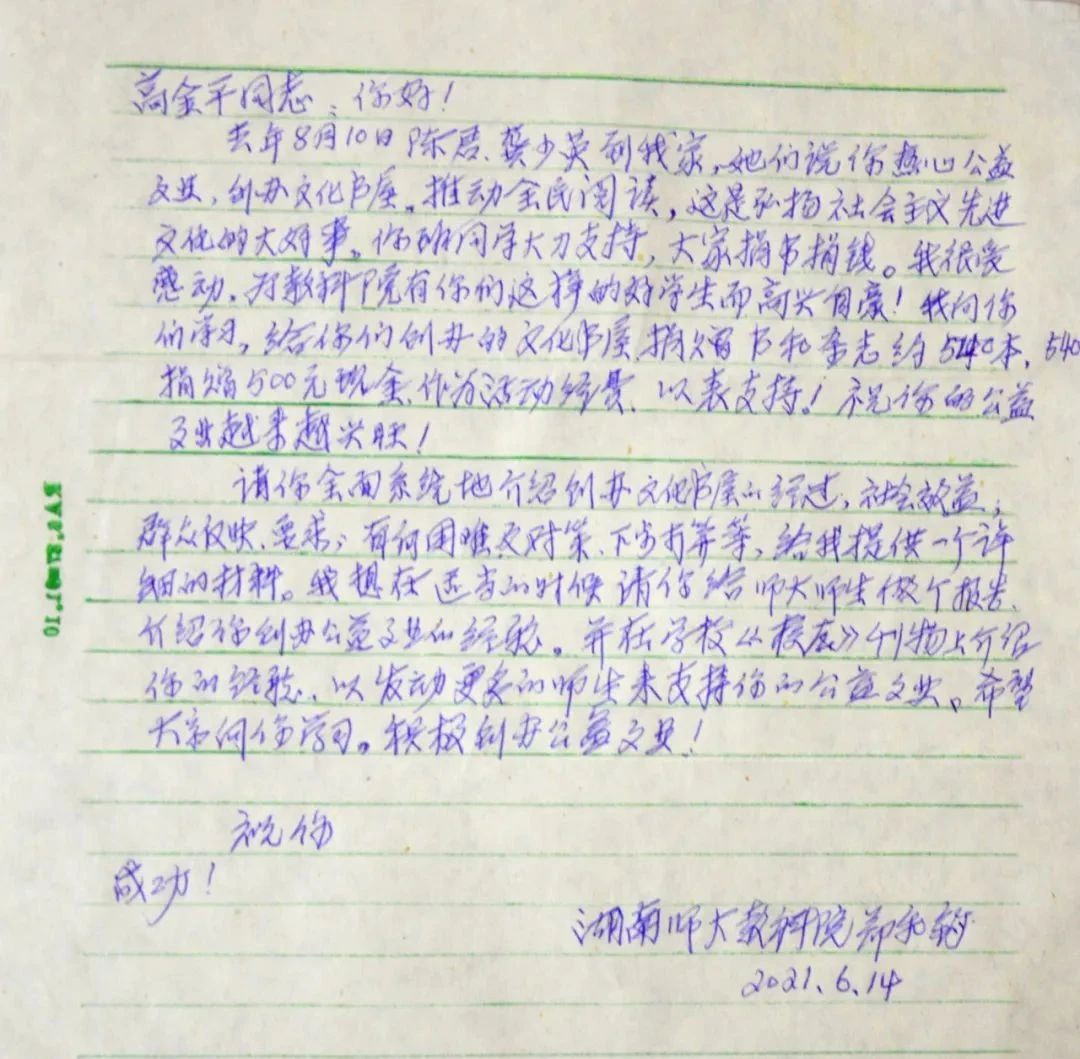 高金平同志：你好！
去年8月10日陈君、龚少英到我家，她们说你热心公益
文业，创办文化书屋。推动全民阅读，这是弘扬社会主义先进
文化的大好事。你班同学大力支持，大家捐书捐钱。我很受
感动，为教科院有你们这样的好学生而高兴自豪！我向你
们学习，给你们创办的文化书屋捐赠书和杂志约540本，540
捐赠500元现金、作为活动经费、以表支持！祝你的公益
文业越来越兴旺！
请你全面系统地介绍创办文化书屋的经过，社会效益，
群众反映、要求；有何困难及对策、下步打算等，给我提供一个详
细的材料。我想在适当的时候请你给师大师生做个报告、
介绍你创办公益文业的经验。并在学校《》刊物上介绍
你的经验、以发动更多的师生来支持你的公益文业。希望
大家向你学习。积极创办公益文业！
祝你
成功！
湖南师大教科院郑和
2021.6.14